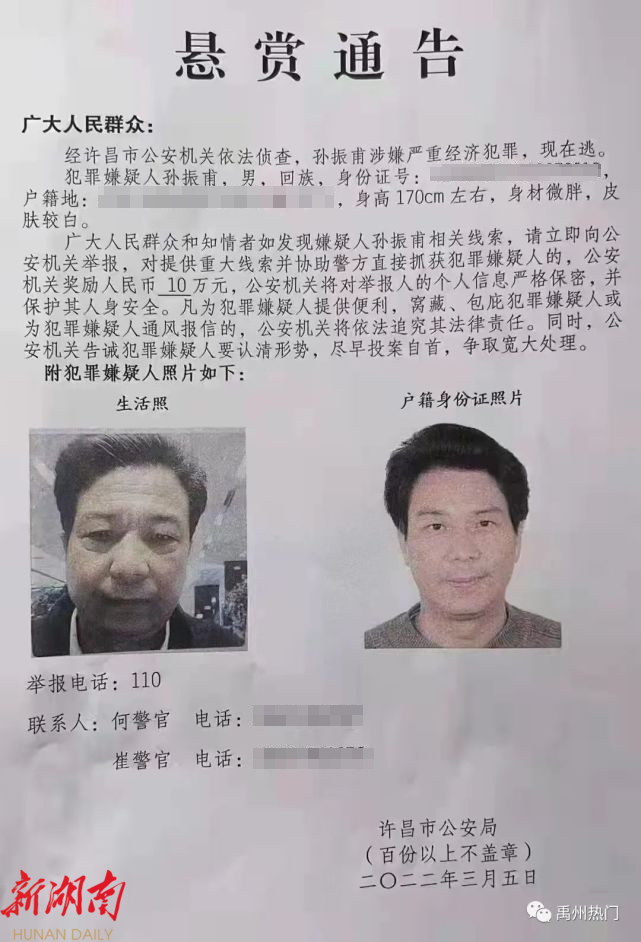 悬赏通告
广大人民群众：
经许昌市公安机关依法侦查，孙振甫涉嫌严重经济犯罪，现在逃。
犯罪嫌疑人孙振甫，男，回族，身份证号：
户籍地：，身高170cm左右，身材微胖，皮
肤较白。
广大人民群众和知情者如发现嫌疑人孙振甫相关线索，请立即向公
安机关举报，对提供重大线索并协助警方直接抓获犯罪嫌疑人的，公安
机关奖励人民币 10 万元，公安机关将对举报人的个人信息严格保密，并
保护其人身安全。凡为犯罪嫌疑人提供便利，窝藏、包庇犯罪嫌疑人或
为犯罪嫌疑人通风报信的，公安机关将依法追究其法律责任。同时，公
安机关告诫犯罪嫌疑人要认清形势，尽早投案自首，争取宽大处理。
附犯罪嫌疑人照片如下：
生活照
户籍身份证照片
举报电话：110
联系人：何警官 电话：
崔警官 电话：
许昌市公安局
（百份以上不盖章）
二〇二二年三月五日
新湖南
HUNAN DAILY
禹州热门